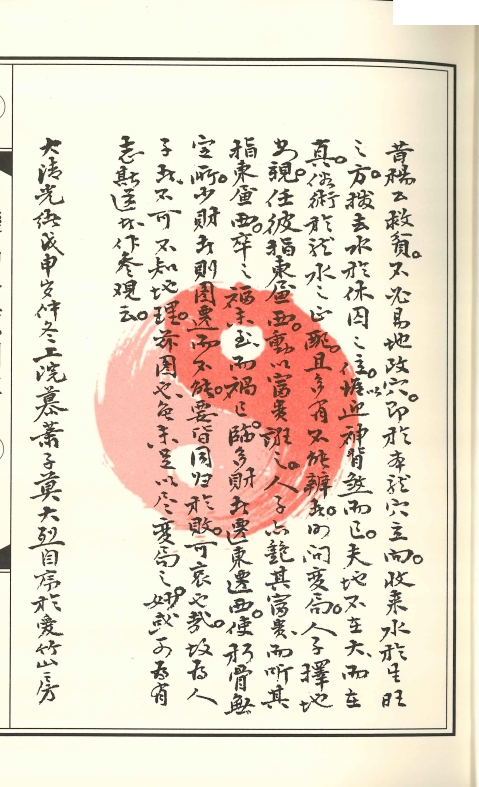 昔楊公救貧。不必易地改穴。即於本龍穴立向。收來水於生旺
之方。撥去水於休囚之位。以避迎神背煞而已。夫地不在大。而在
真。俗術於龍水之正配。且多有不能辦者。尚問變局。人子擇地
親任彼指東廬西。動以富貴誑之。人子亦艷其富貴。而聽其
指東廬西。卒之福未至而禍已臨。多財者遷東遷西。使朽骨無
定所。少財者則因遷而不能。要皆同归於敗。可哀也哉。故為人
子者不可不知地理。茲圖也。雖未足以尽變局之妙。或可為有
志斯道者作參观云。
大清光緒戊申岁仲冬上浣慕蕭子莫大烈自序於愛竹山房